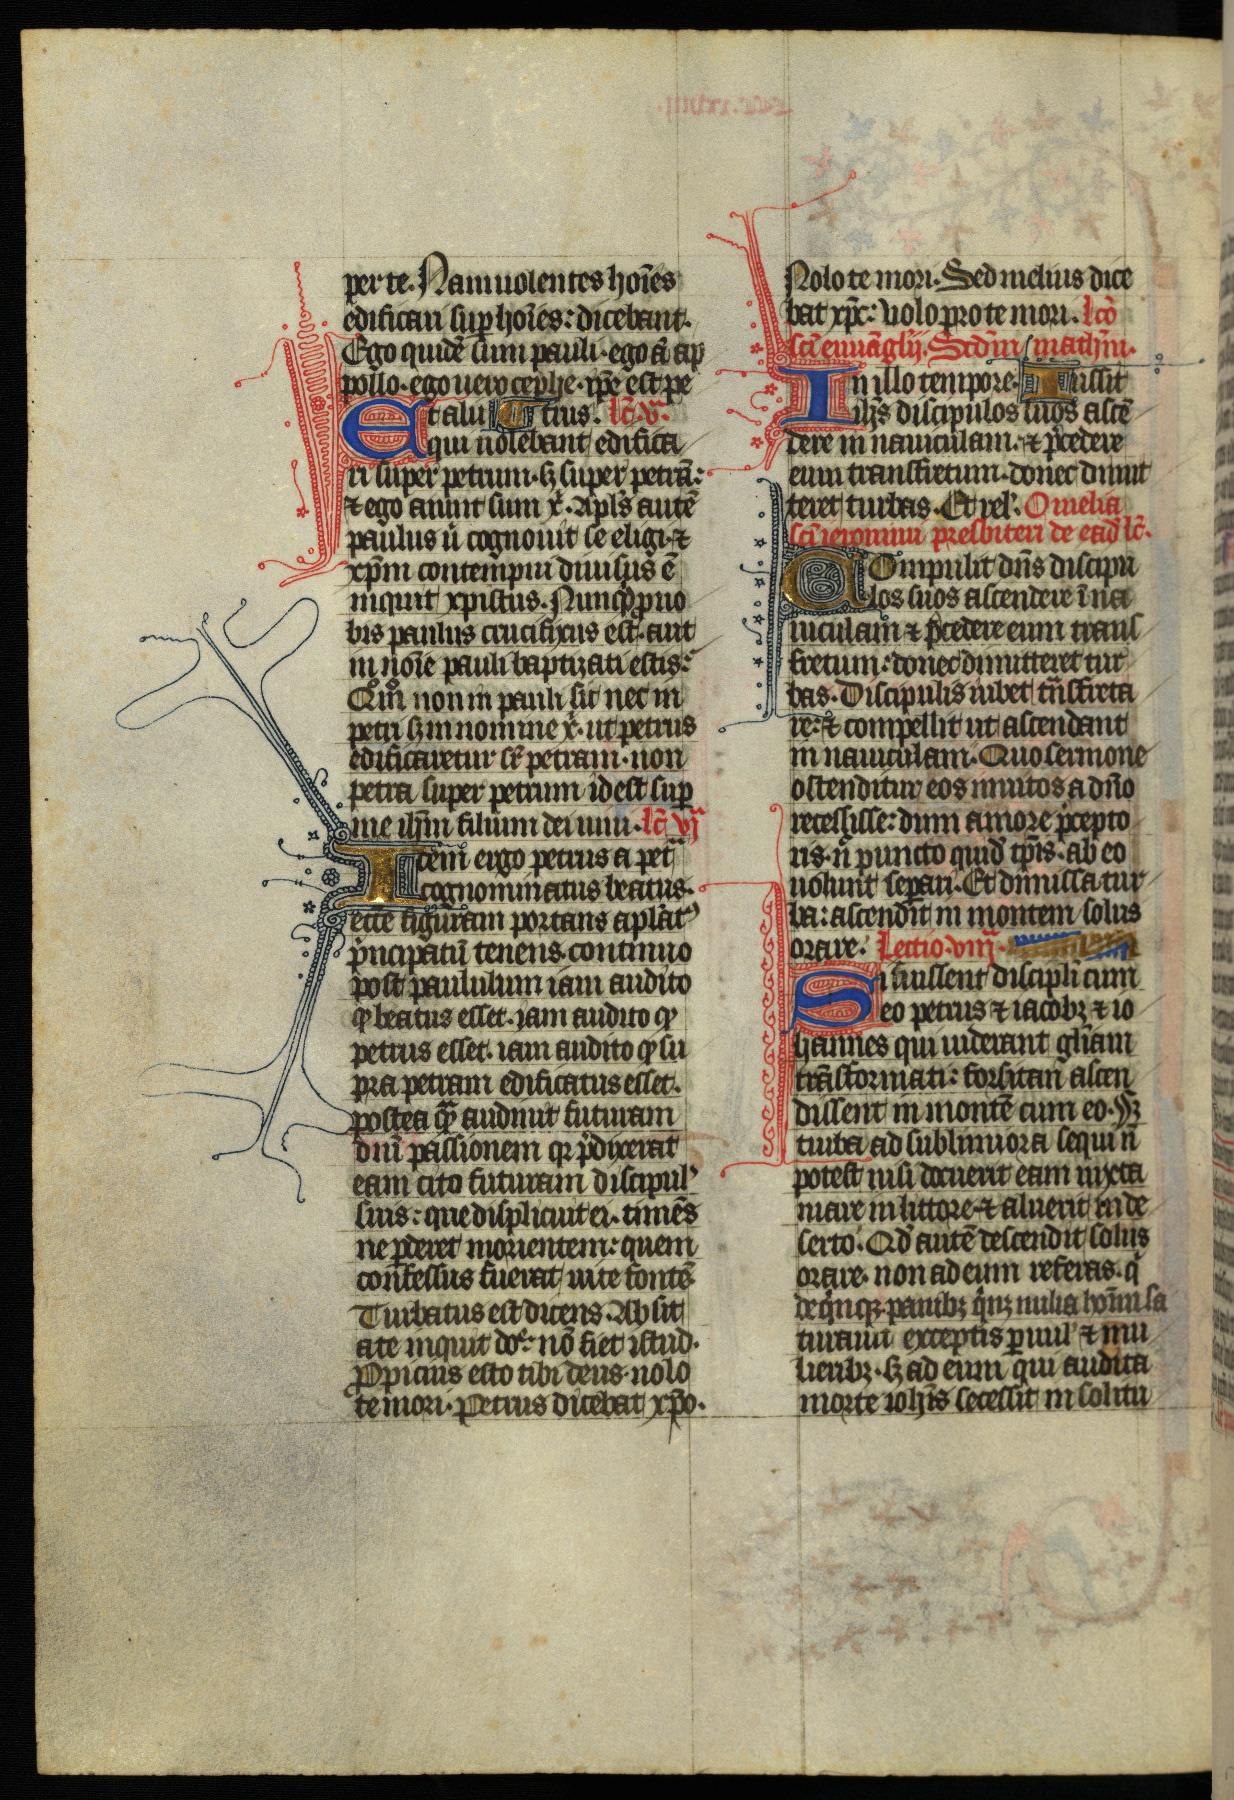 per te. Nam uolentes hoīes
edificari sup hoīes: dicebant.
Ego quidē sum pauli. ego ā ap
pollo. ego uero cephe. ip̄e est pe
Et alii tri us. lc̄. v.ª
qui nolebant edifica
ri super petrum. sꝫ super petrā:
⁊ ego autm̄ sum x̄. Apl̄s autē
paulus ū cognouit se eligi. ⁊
xp̄m contempni diuisus ē
inquit xpistus. Nunqͥd p uo
bis paulus crucifixus est. aut
in noīe pauli baptizati estis:
Qm̄ non in pauli sic nec in
petri sꝫ in nomine x̄. ut petrus
edificaretur sr̄ petram. non
petra super petrum id est sup
me ih̄m filium dei uiui. lc̄ vj
Item ergo petrus a pet̄
cognominatus beatus.
ecc̄e figuram portans apl̄at⁹
p̄ncipatū tenens. continuo
post paululum iam audito
ꝙ beatus esset. iam audito ꝙ
petrus esset. iam audito ꝙ su
pra petram edificatus esset.
postea qͣ audiuit futuram
dn̄i passionem qͣ p̄dixerat
eam cito futuram discipul'
suis: que displicuit ei. timēs
ne ꝑderet morientem: quem
confessus fuerat uite fontē
Turbatus est dicens. Absit
a te inquit do͡e: nō fiet istud.
Ꝓpicius esto tibi deus. nolo
te mori. Petrus dicebat xp̄o.
Nolo te mori. Sed melius dice
bat xp̄c: uolo pro te mori. lcō
sc̄i euuāglij. Scdm mathm̄.
In illo tempore. Iussit
ih̄s discipulos suos ascē
dere in nauiculam. ⁊ p̄cedere
eum transfretum. donec dimit
teret turbas. Et rel'. Omelia
sc̄i ieronimi presbiteri de ead̄ lc̄.
Compulit dn̄s discipu
los suos ascendere ī na
uiculam ⁊ p̄cedere eum trans
fretum: donec dimitteret tur
bas. Discipulis iubet tn̄sfreta
re: ⁊ compellit ut ascendant
in nauiculam. Quo sermone
ostenditur eos inuitos a dn̄o
recessisse: dum amore p̄cepto
ris. n̄ puncto quid̄ tp̄is. ab eo
uolunt separi. Et dimissa tur
ba: ascendit in montem solus
orare. Lectio. viiij.
Si fuissent discipli cum
eo petrus ⁊ iacobꝫ ⁊ io
hannes qui uiderant gl̄iam
trāsformati: forsitan ascen
dissent in montē cum eo. Sꝫ
turba ad sublimiora sequi n̄
potest nisi docuerit eam iuxta
mare in littore. ⁊ aluerit in de
serto. Qd̄ autē descendit solus
orare. non ad eum referas. qͥ
de qͥnqꝫ panibꝫ qͥnqꝫ milia hom̄ sa
turauit exceptis paruul' ⁊ mu
lieribꝫ. sꝫ ad eum qui audita
morte ioh̄is secessit in solitu